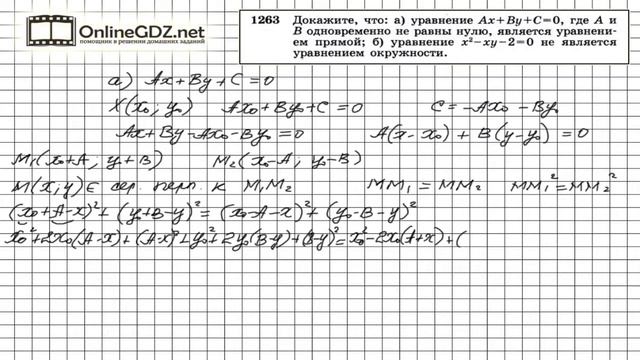 OnlineGDZ.com
помощник в решении домашних заданий
1263 Докажите, что: а) уравнение Ax+By+C=0, где A и
B одновременно не равны нулю, является уравнени-
ем прямой; б) уравнение x²−xy−2=0 не является
уравнением окружности.
а) Ax+By+C=0
X(x₀; y₀) Ax₀+By₀+C=0 C=-Ax₀-By₀
Ax+By-Ax₀-By₀=0 A(x-x₀)+B(y-y₀)=0
M₁(x₀+A; y+B) M₂(x₀-A; y₀-B)
M(x;y)∈ сер. перп. к M₁M₂ MM₁=MM₂ MM₁²=MM₂²
(x₀+A-x)²+(y₀+B-y)²=(x₀-A-x)²+(y₀-B-y)²